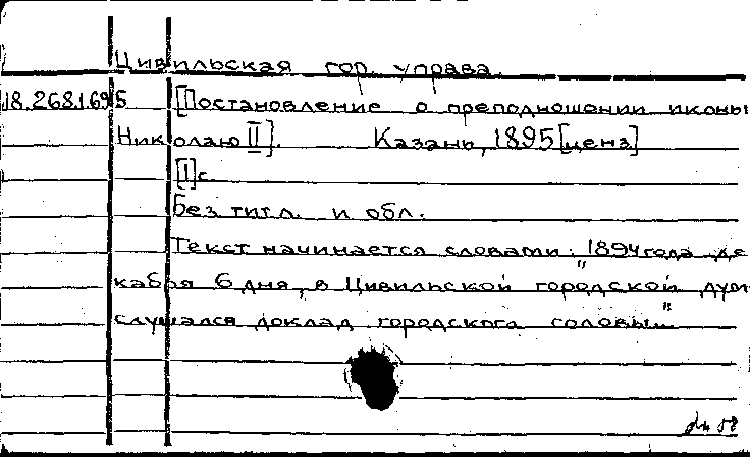 Цивильская гор. управа.
18.268.1.695 [Постановление о преподношении иконы
Николаю II]. Казань, 1895 [ценз]
[1]с.
Без титл. и обл.
Текст начинается словами: "1894 года де
кабря 6 дня, в Цивильской городской дум
слушался доклад городского головы..."